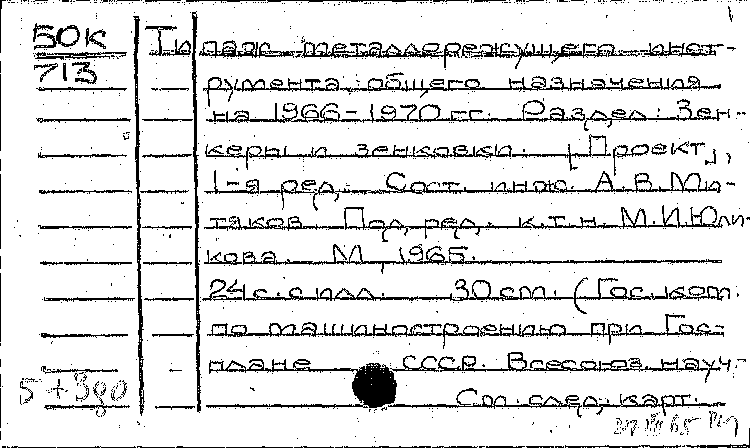 50К
713
Типаж металлорежущего инст-
румента общего назначения
на 1966-1970 гг. Раздел: Зен-
керы и зенковки. [Проект],
1-я ред. Сост. инж. А.В.Ми-
тяков. Под ред. к.т.н. М.И.Юли-
кова. М., 1965.
24 с. с илл. 30 см. (Гос. ком.
по машиностроению при Гос-
плане СССР. Всесоюз. науч.-
См. след. карт.
5+3до